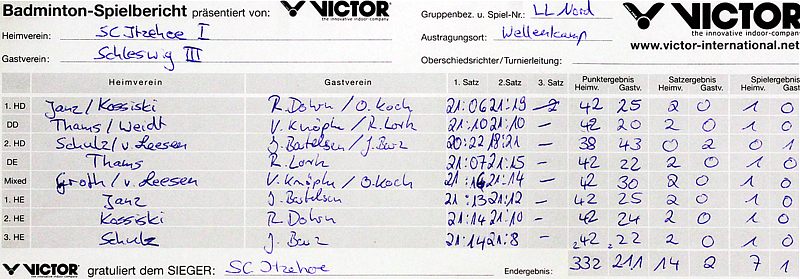 Badminton-Spielbericht präsentiert von: VICTOR the innovative indoor-company
Gruppenbez. u. Spiel-Nr.: LL Nord VICTOR the innovative indoor-company
Heimverein: SC Itzehoe I
Austragungsort: Wellenkamp www.victor-international.net
Gastverein: Schleswig III
Oberschiedsrichter/Turnierleitung:
Heimverein Gastverein 1. Satz 2.Satz 3. Satz Punktergebnis Heimv. Gastv. Satzergebnis Heimv. Gastv. Spielergebnis Heimv. Gastv.
1. HD Janz/Kossiski R. Dohrn / O. Koch 21:06 21:19 – 42 25 2 0 1 0
DD Thams/Weidt V. Knöpke / R. Lorh 21:10 21:10 – 42 20 2 0 1 0
2. HD Schulz/v. Leesen J. Bartelsen / J. Barz 20:22 18:21 – 38 43 0 2 0 1
DE Thams R. Lorh 21:07 21:15 – 42 22 2 0 1 0
Mixed Groth / v. Leesen V. Knöpke / O. Koch 21:16 21:14 – 42 30 2 0 1 0
1. HE Janz J. Bartelsen 21:13 21:12 – 42 25 2 0 1 0
2. HE Kossiski R. Dohrn 21:14 21:10 – 42 24 2 0 1 0
3. HE Schulz J. Barz 21:14 21:8 – 42 22 2 0 1 0
VICTOR the innovative indoor-company gratuliert dem SIEGER: SC Itzehoe Endergebnis: 332 211 14 2 7 1